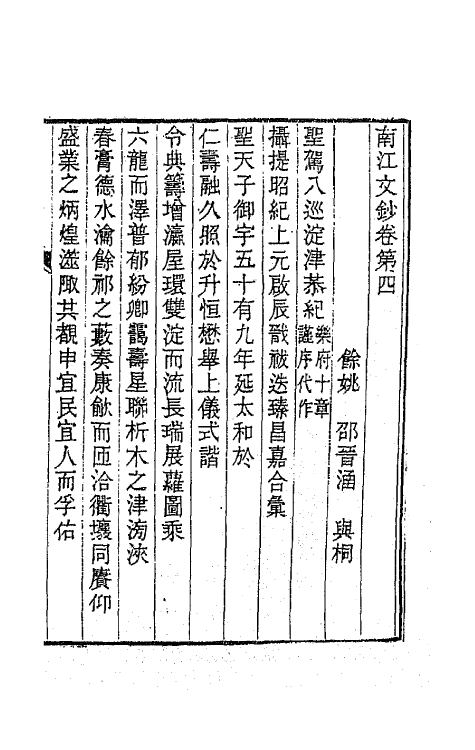 南江文鈔卷第四
餘姚 邵晉涵 與桐
聖駕八巡淀津恭紀樂府十章謹序代作
攝提昭紀上元啟辰戩祓迭臻昌嘉合彙
聖天子御宇五十有九年延太和於
仁壽融久照於升恒懋舉上儀式諧
令典籌增瀛屋環雙淀而流長瑞展蘿圖乘
六龍而澤普郁紛卿靄壽星聯析木之津滂浹
春膏德水瀹餘祁之藪奏康飲而匝洽衢壤同賡仰
盛業之炳煌遊陬共覩申宜民宜人而孚佑